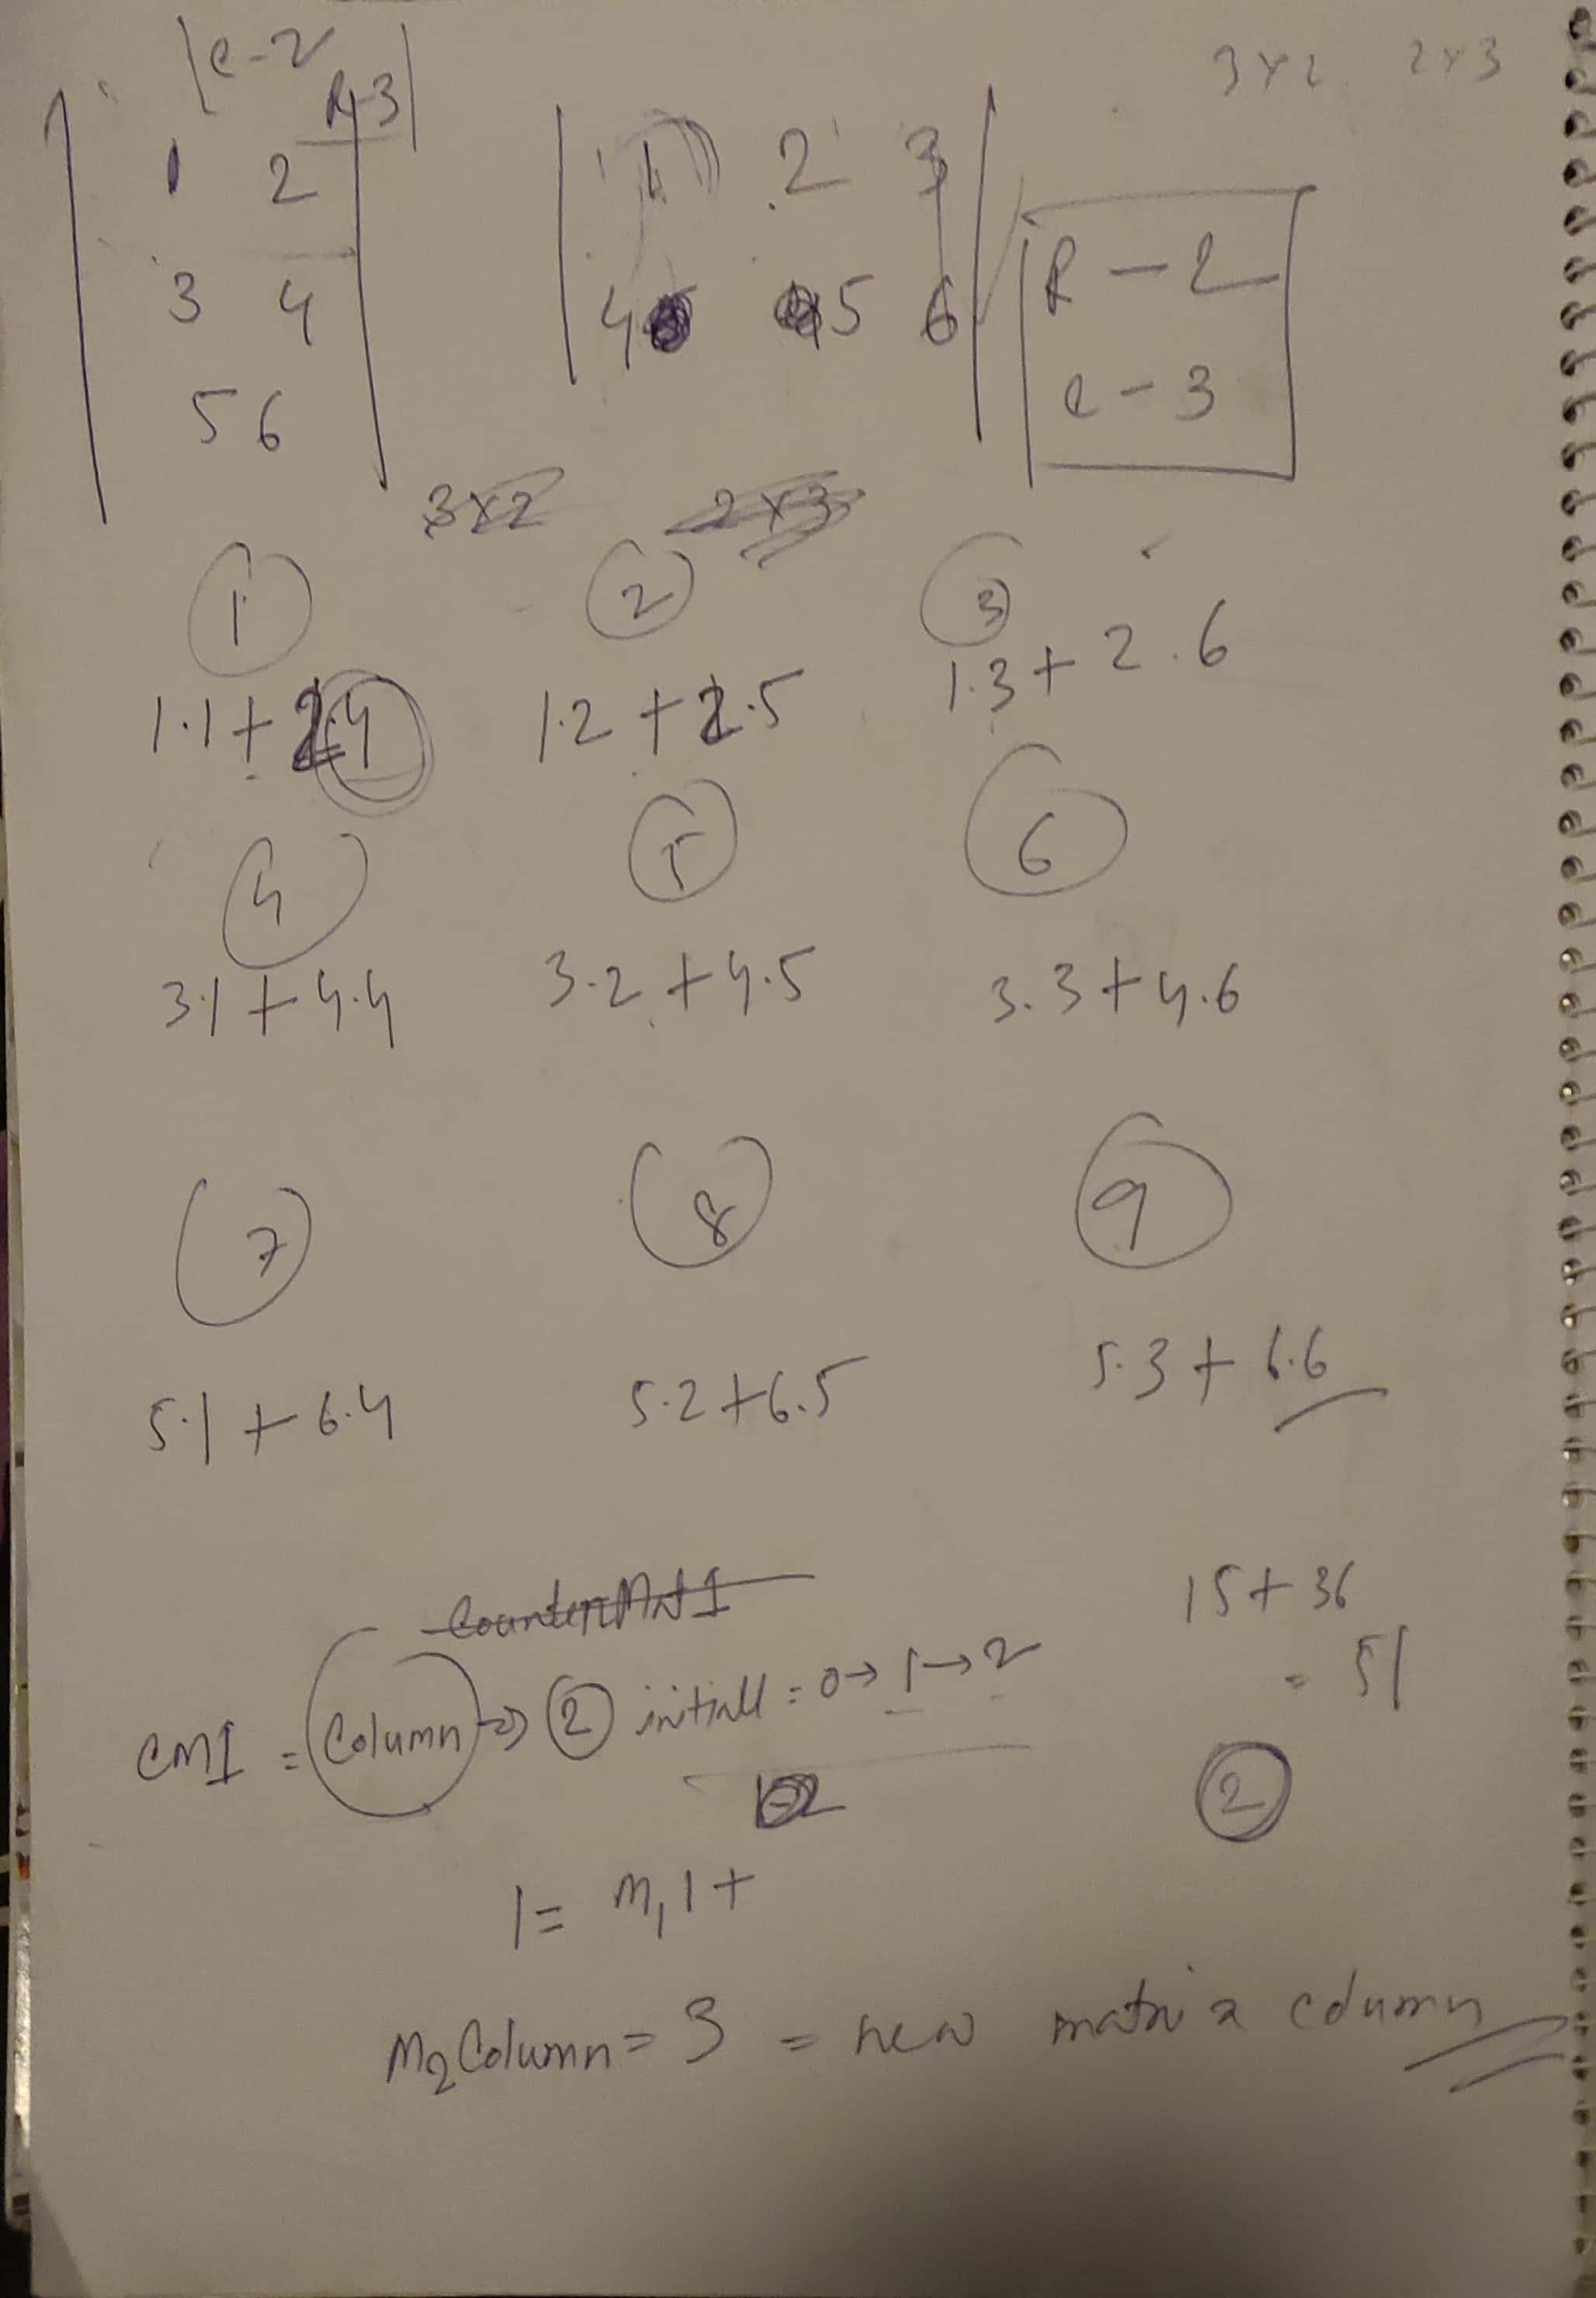 C-2
R-3
3x2 2x3
1 2
3 4
5 6
1 2 3
4 5 6
R - 2
C - 3
3x2 2x3
1 2 3
1.1 + 2.4 1.2 + 2.5 1.3 + 2.6
4 5 6
3.1 + 4.4 3.2 + 4.5 3.3 + 4.6
7 8 9
5.1 + 6.4 5.2 + 6.5 5.3 + 6.6
15 + 36
= 51
CM1 = Column => 2 initiall = 0 → 1 → 2
2
1 = M,1+
M2 Column = 3 = new matrix column